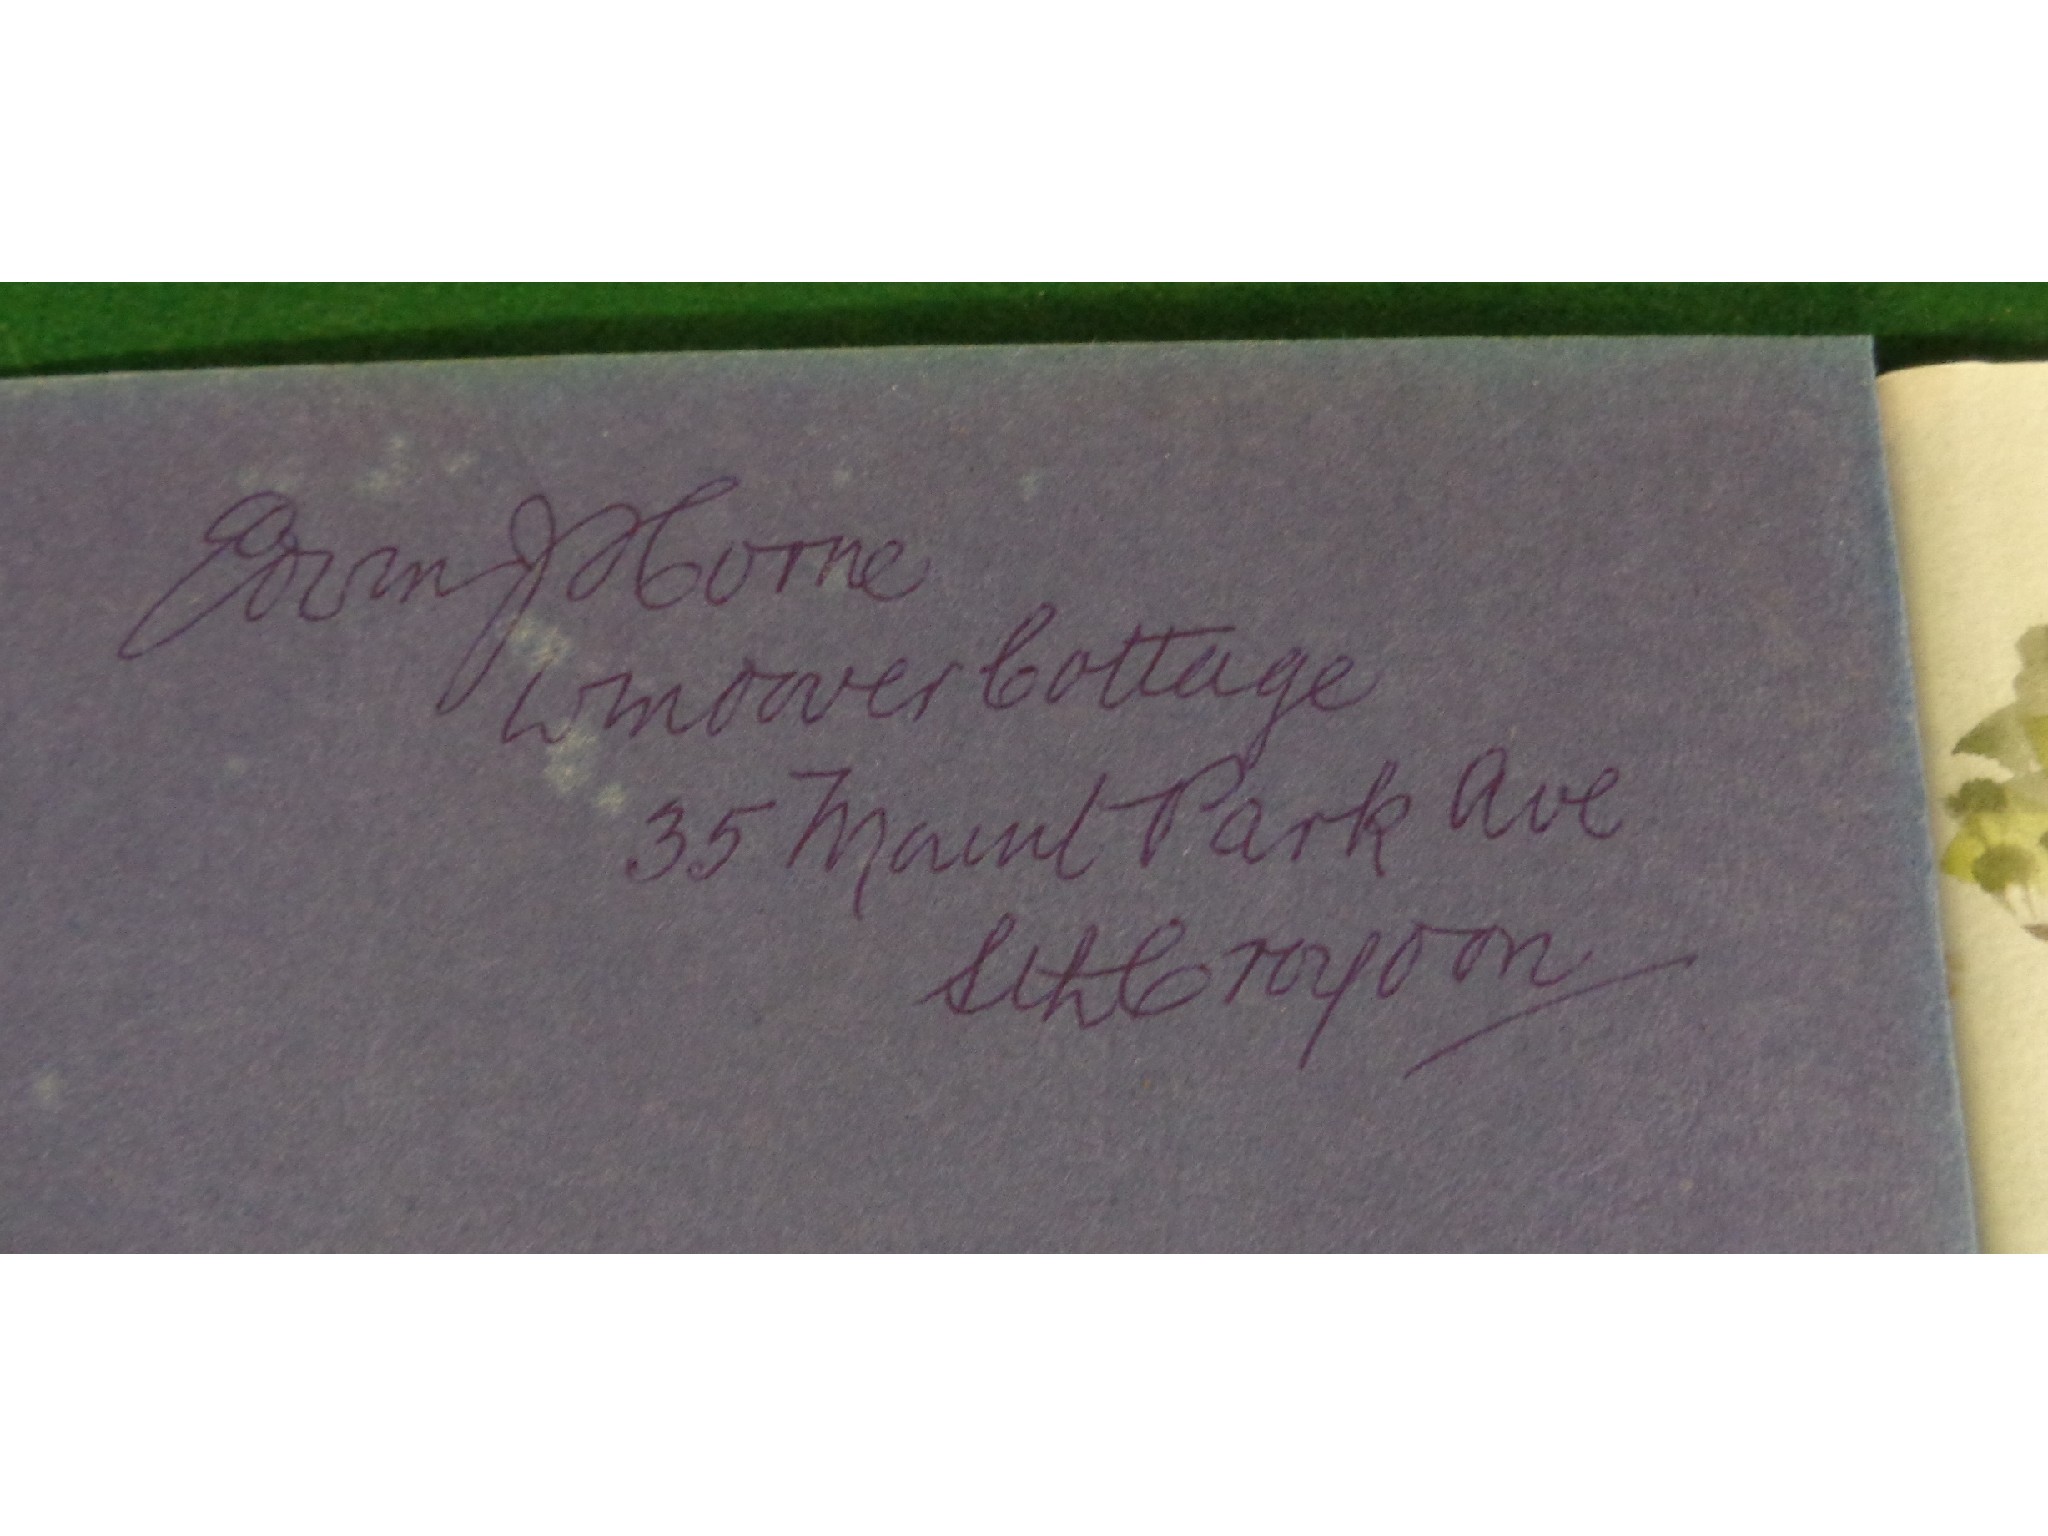 Edwin J Horne
Windover Cottage
35 Mount Park Ave
Sth Croydon